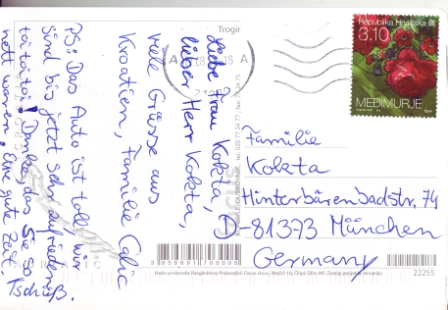 Trogir
Republika Hrvatska
3.10
MEĐIMURJE
Liebe Frau Kokta,
lieber Herr Kokta,
viele Grüsse aus
Kroatien, Familie
PS: Das Auto ist toll, wir
sind bis jetzt sehr zufrieden,
toi toi toi! Danke, das Sie so
nett waren. Eine gute Zeit.
Tschüß.
Familie
Kokta
Hinterbärenbadstr. 74
D-81373 München
Germany
3859891700095
22255